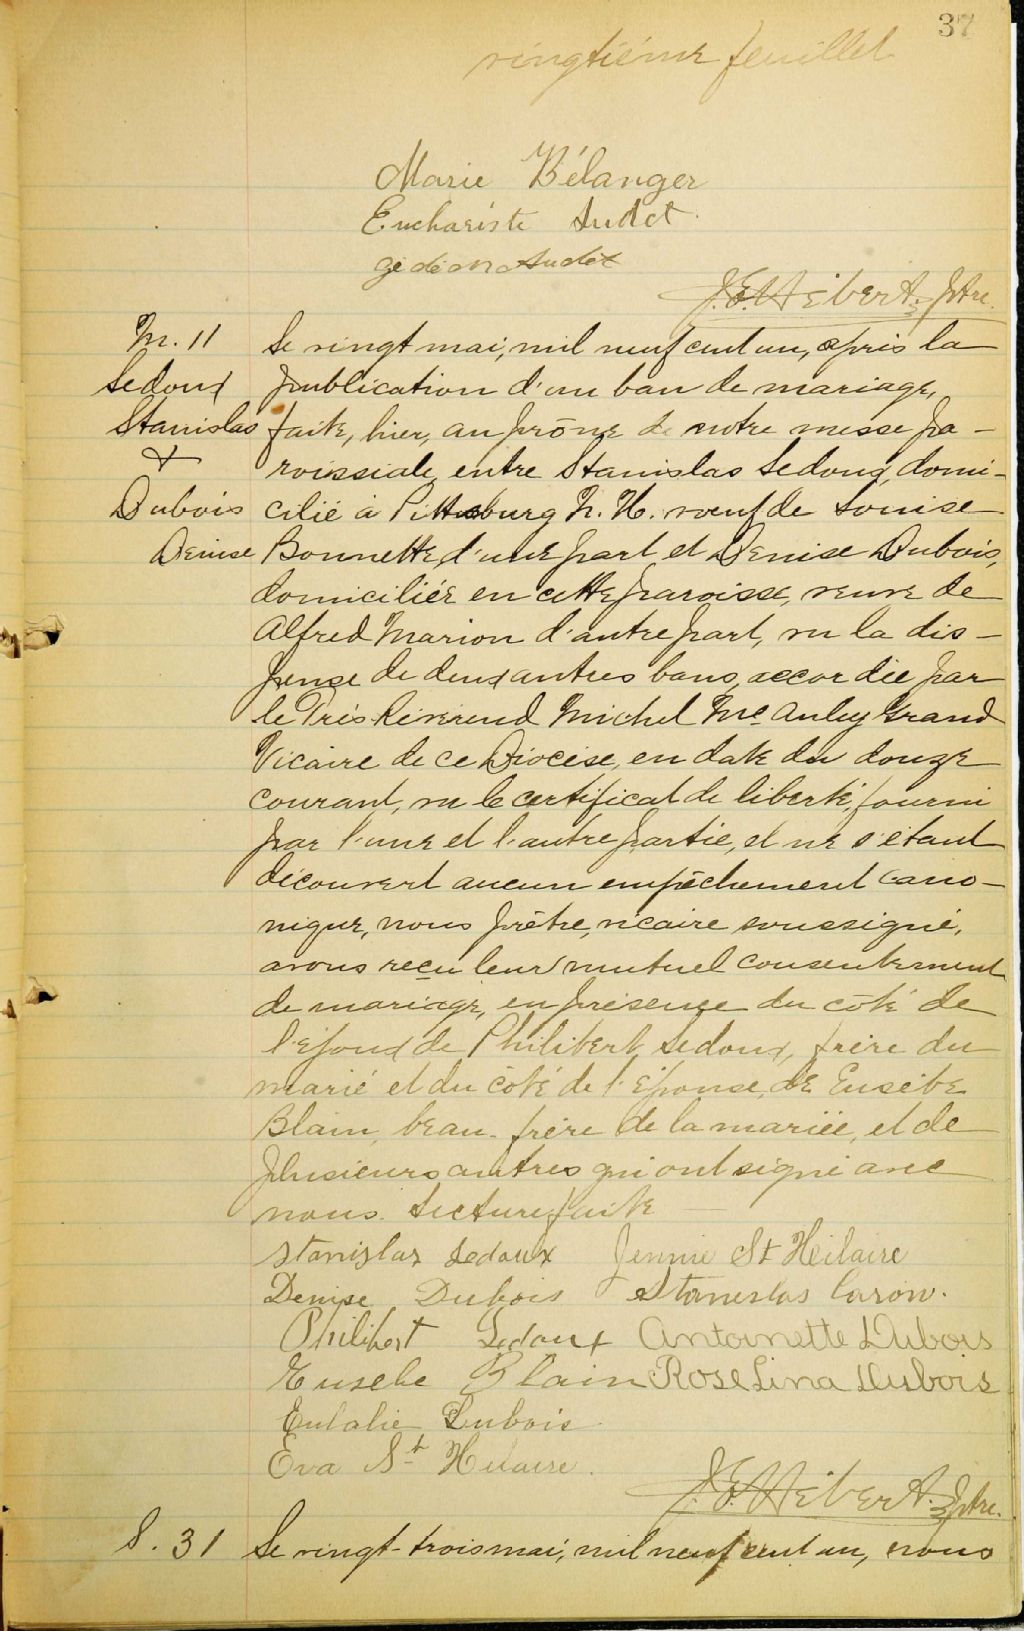 37
vingtième feuillet
Marie Bélanger
Euchariste Audet
Gédéon Audet
J.E. Hébert, Ptre.
M. 11
Ledoux
Stanislas
&
Dubois
Denise
Le vingt mai, mil neuf cent un, après la
publication d'un ban de mariage,
faite, hier, au prône de notre messe pa-
roissiale, entre Stanislas Ledoux, domi-
cilié à Pittsburg N. H. veuf de Louise
Bonnette, d'une part, et Denise Dubois,
domiciliée en cette paroisse, veuve de
Alfred Marion d'autre part, vu la dis-
pense de deux autres bans, accordée par
le Très Révérend Michel Mc Auley Grand
Vicaire de ce Diocèse, en date du douze
courant, vu le certificat de liberté, fourni
par l'une et l'autre partie, et ne s'étant
découvert aucun empêchement cano-
nique, nous prêtre, vicaire soussigné,
avons reçu leur mutuel consentement
de mariage, en présence du côté de
l'époux de Philibert Ledoux, frère du
marié et du côté de l'épouse, de Eusèbe
Blain, beau-frère de la mariée, et de
plusieurs autres qui ont signé avec
nous. Lecture faite
Stanislas Ledoux Jennie St Heilaire
Denise Dubois Stanislas Caron.
Philibert Ledoux Antoinette Dubois
Eusebe Blain Rose Lina Dubois
Eulalie Dubois
Eva St Hilaire.
J.E. Hébert, Ptre.
S. 31
Le vingt-trois mai, mil neuf cent un, nous